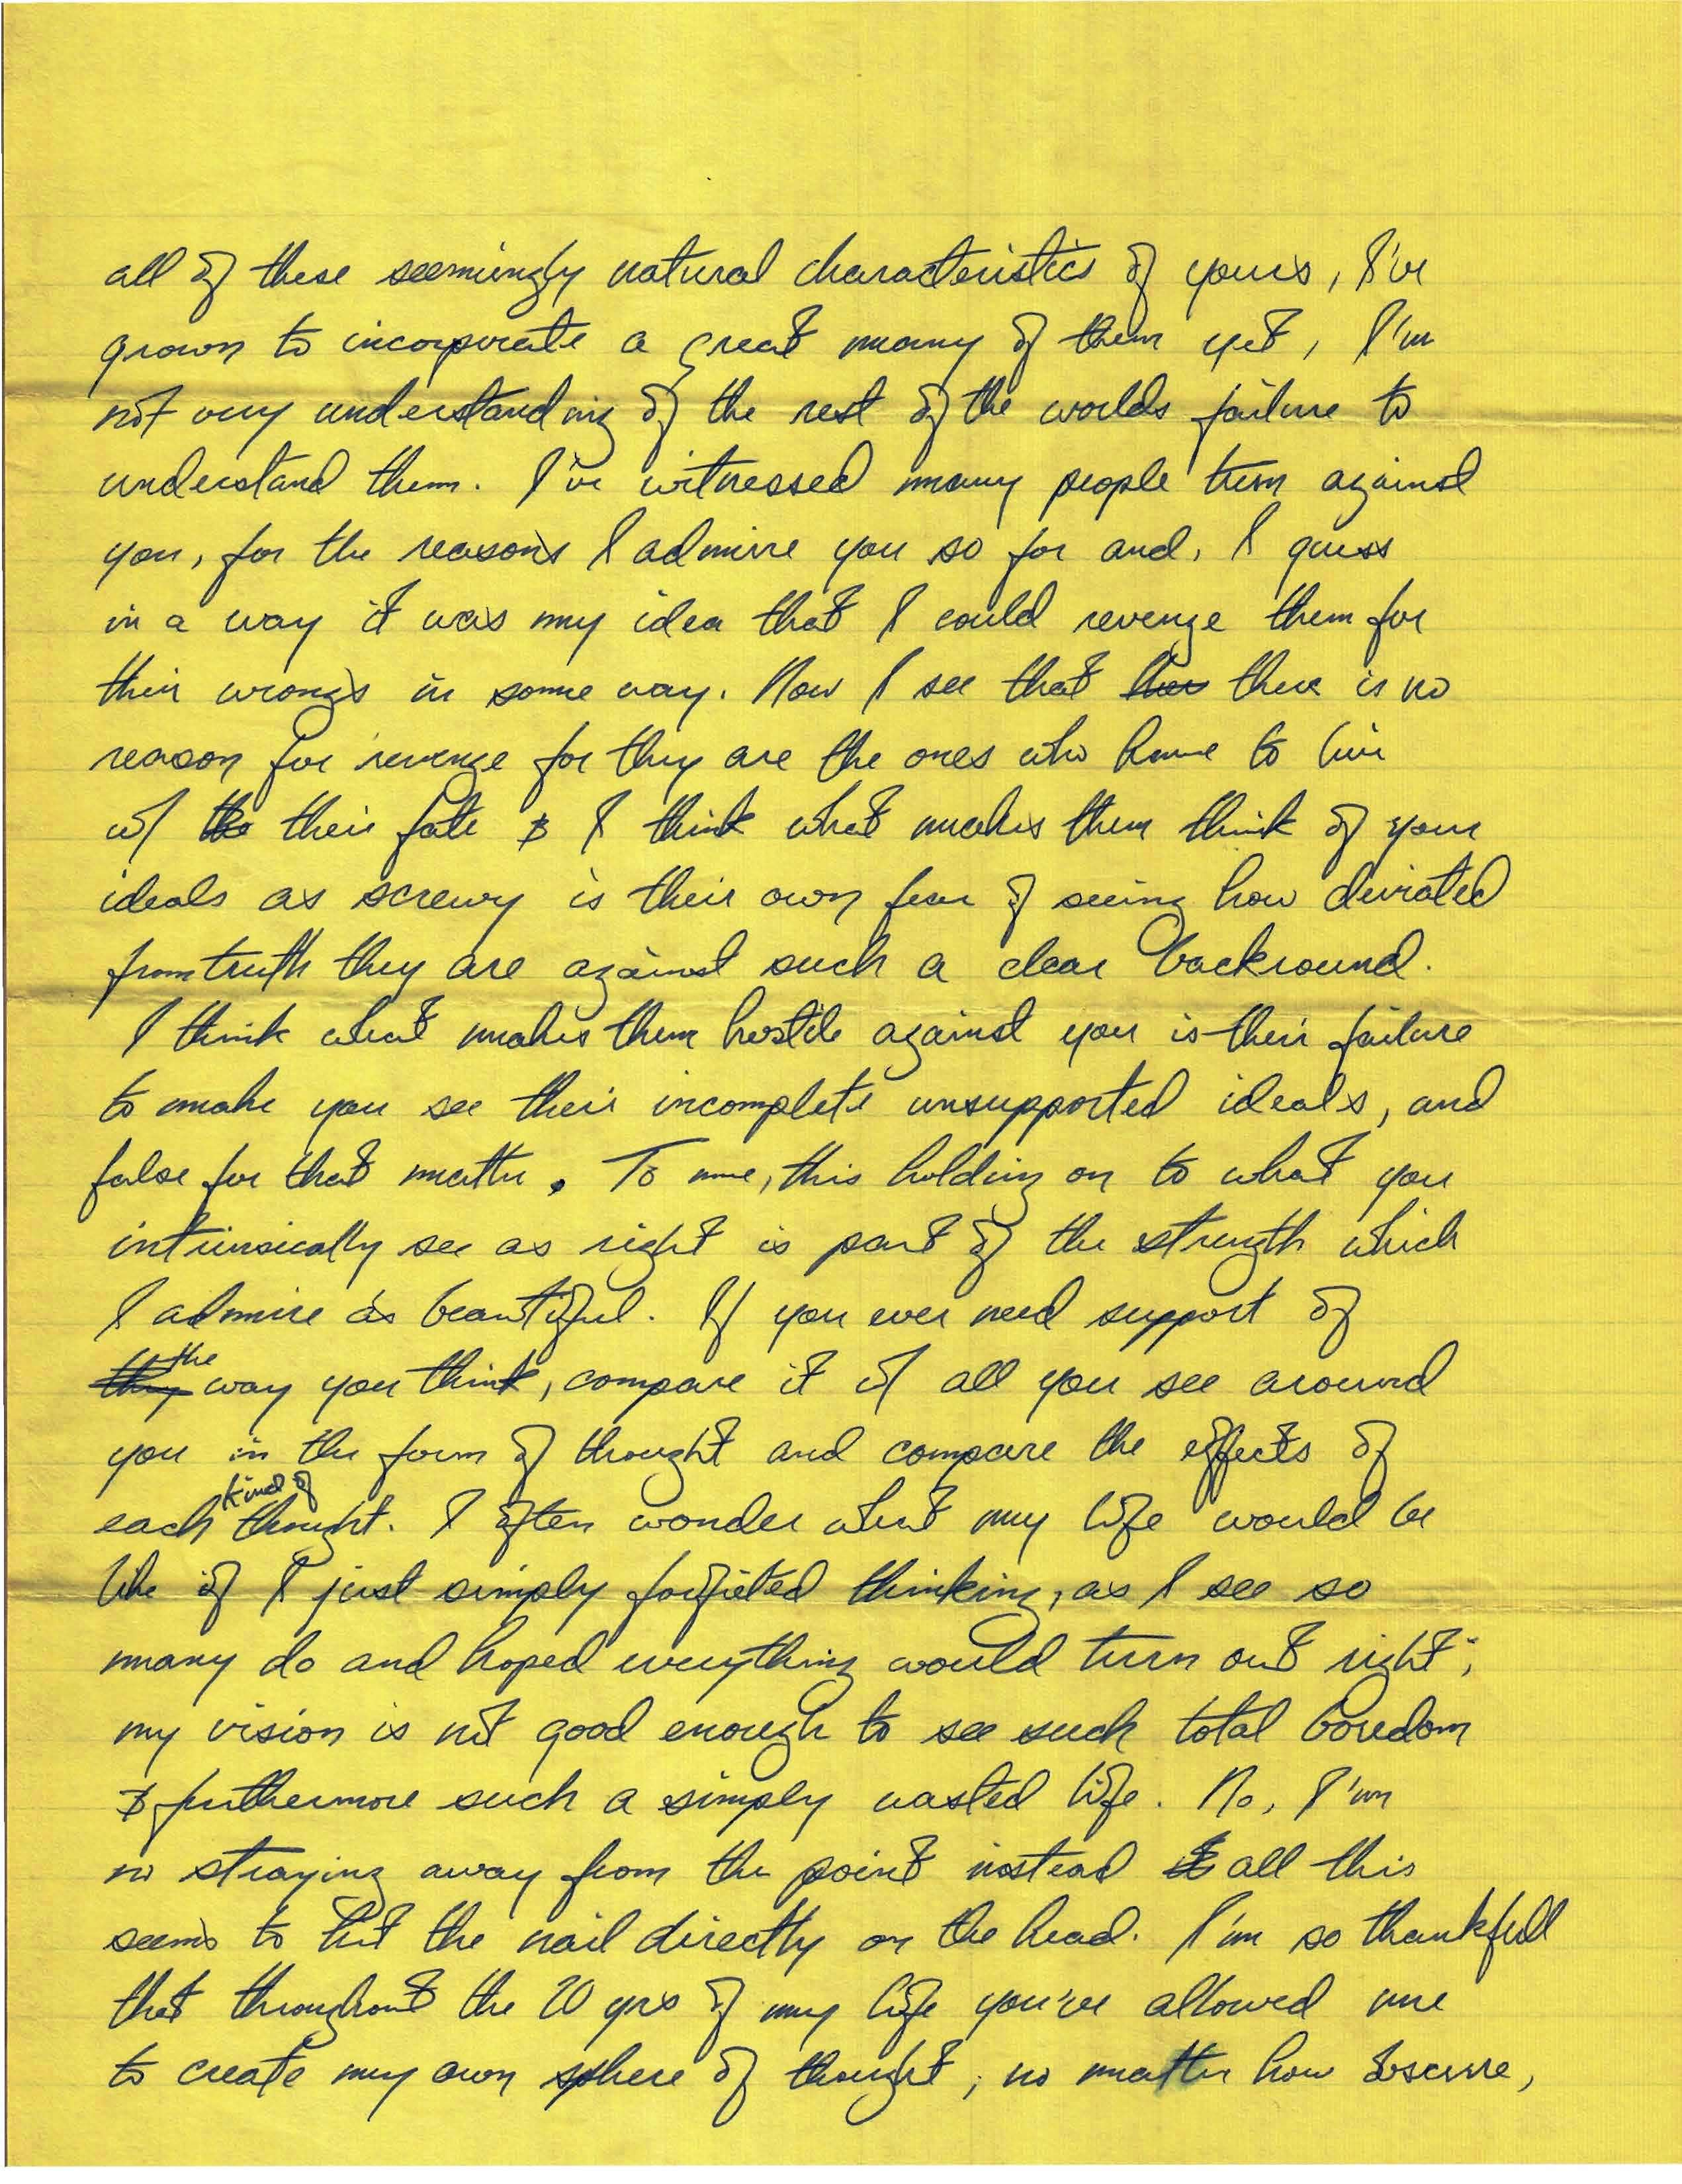 all of these seemingly natural characteristics of yours, I've
grown to incorporate a great many of them yet, I'm
not very understanding of the rest of the worlds failure to
understand them. I've witnessed many people turn against
you, for the reasons I admire you so for and, I guess
in a way it was my idea that I could revenge them for
their wrongs in some way. Now I see that there is no
reason for revenge for they are the ones who have to live
w/ their fate & I think what makes them think of your
ideals as screwy is their own fear of seeing how deviated
from truth they are against such a clear backround.
I think what makes them hostile against you is their failure
to make you see their incomplete unsupported ideals, and
false for that matter. To me, this holding on to what you
intrinsically see as right is part of the strength which
I admire as beautiful. If you ever need support of
the way you think, compare it w/ all you see around
you in the form of thought and compare the effects of
each kind of thought. I often wonder what my life would be
like if I just simply forfieted thinking, as I see so
many do and hoped everything would turn out right;
my vision is not good enough to see such total boredom
& furthermore such a simply wasted life. No, I'm
no straying away from the point instead all this
seems to hit the nail directly on the head. I'm so thankfull
that throughout the 20 yrs of my life you've allowed me
to create my own sphere of thought, no matter how obscure,